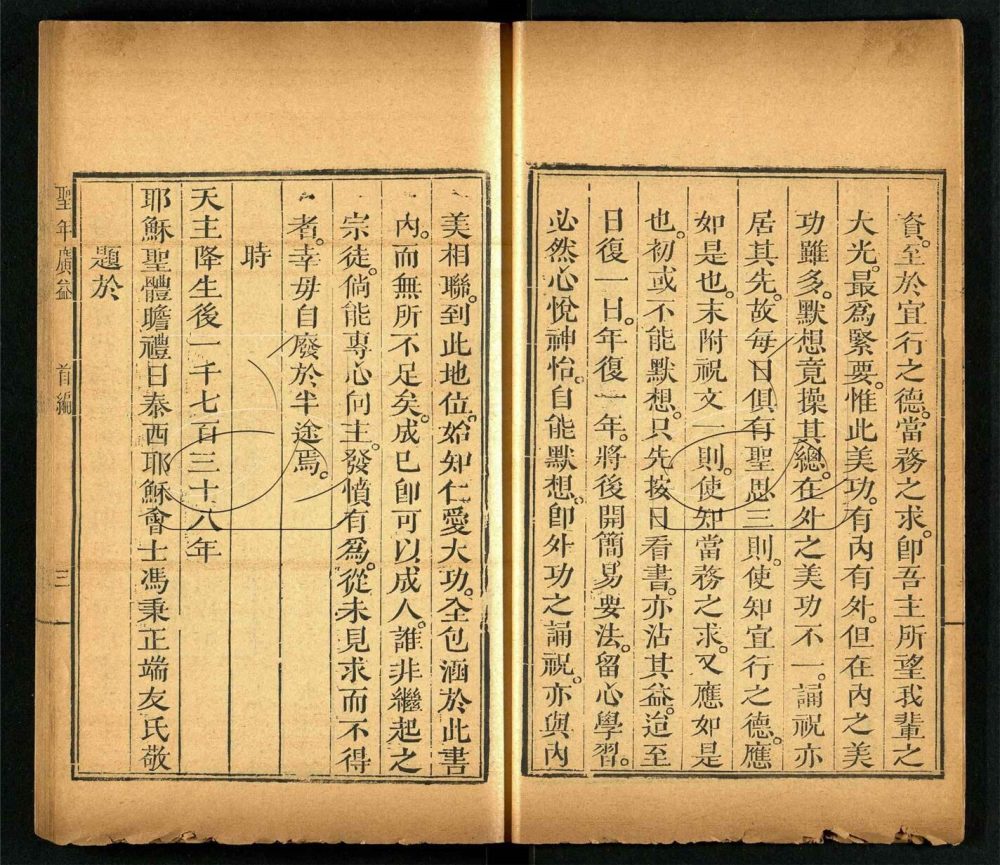 資。至於宜行之德。當務之求。卽吾主所望我輩之
大光。最爲緊要。惟此美功。有內有外。但在內之美
功雖多。默想竟操其總。在外之美功不一。誦祝亦
居其先。故每日俱有聖思三則。使知宜行之德。應
如是也。末附祝文一則。使知當務之求。又應如是
也。初或不能默想。只先按日看書。亦沾其益。迨至
日復一日。年復一年。將後開簡易要法。留心學習。
必然心悅神怡。自能默想。卽外功之誦祝。亦與內
美相聯。到此地位。始知仁愛大功。全包涵於此書
內。而無所不足矣。成已卽可以成人。誰非繼起之
宗徒。倘能專心向主。發憤有爲。從未見求而不得
者。幸毋自廢於半途焉。
時
天主降生後一千七百三十八年
耶穌聖體瞻禮日泰西耶穌會士馮秉正端友氏敬
題於
聖年廣益 首編 三